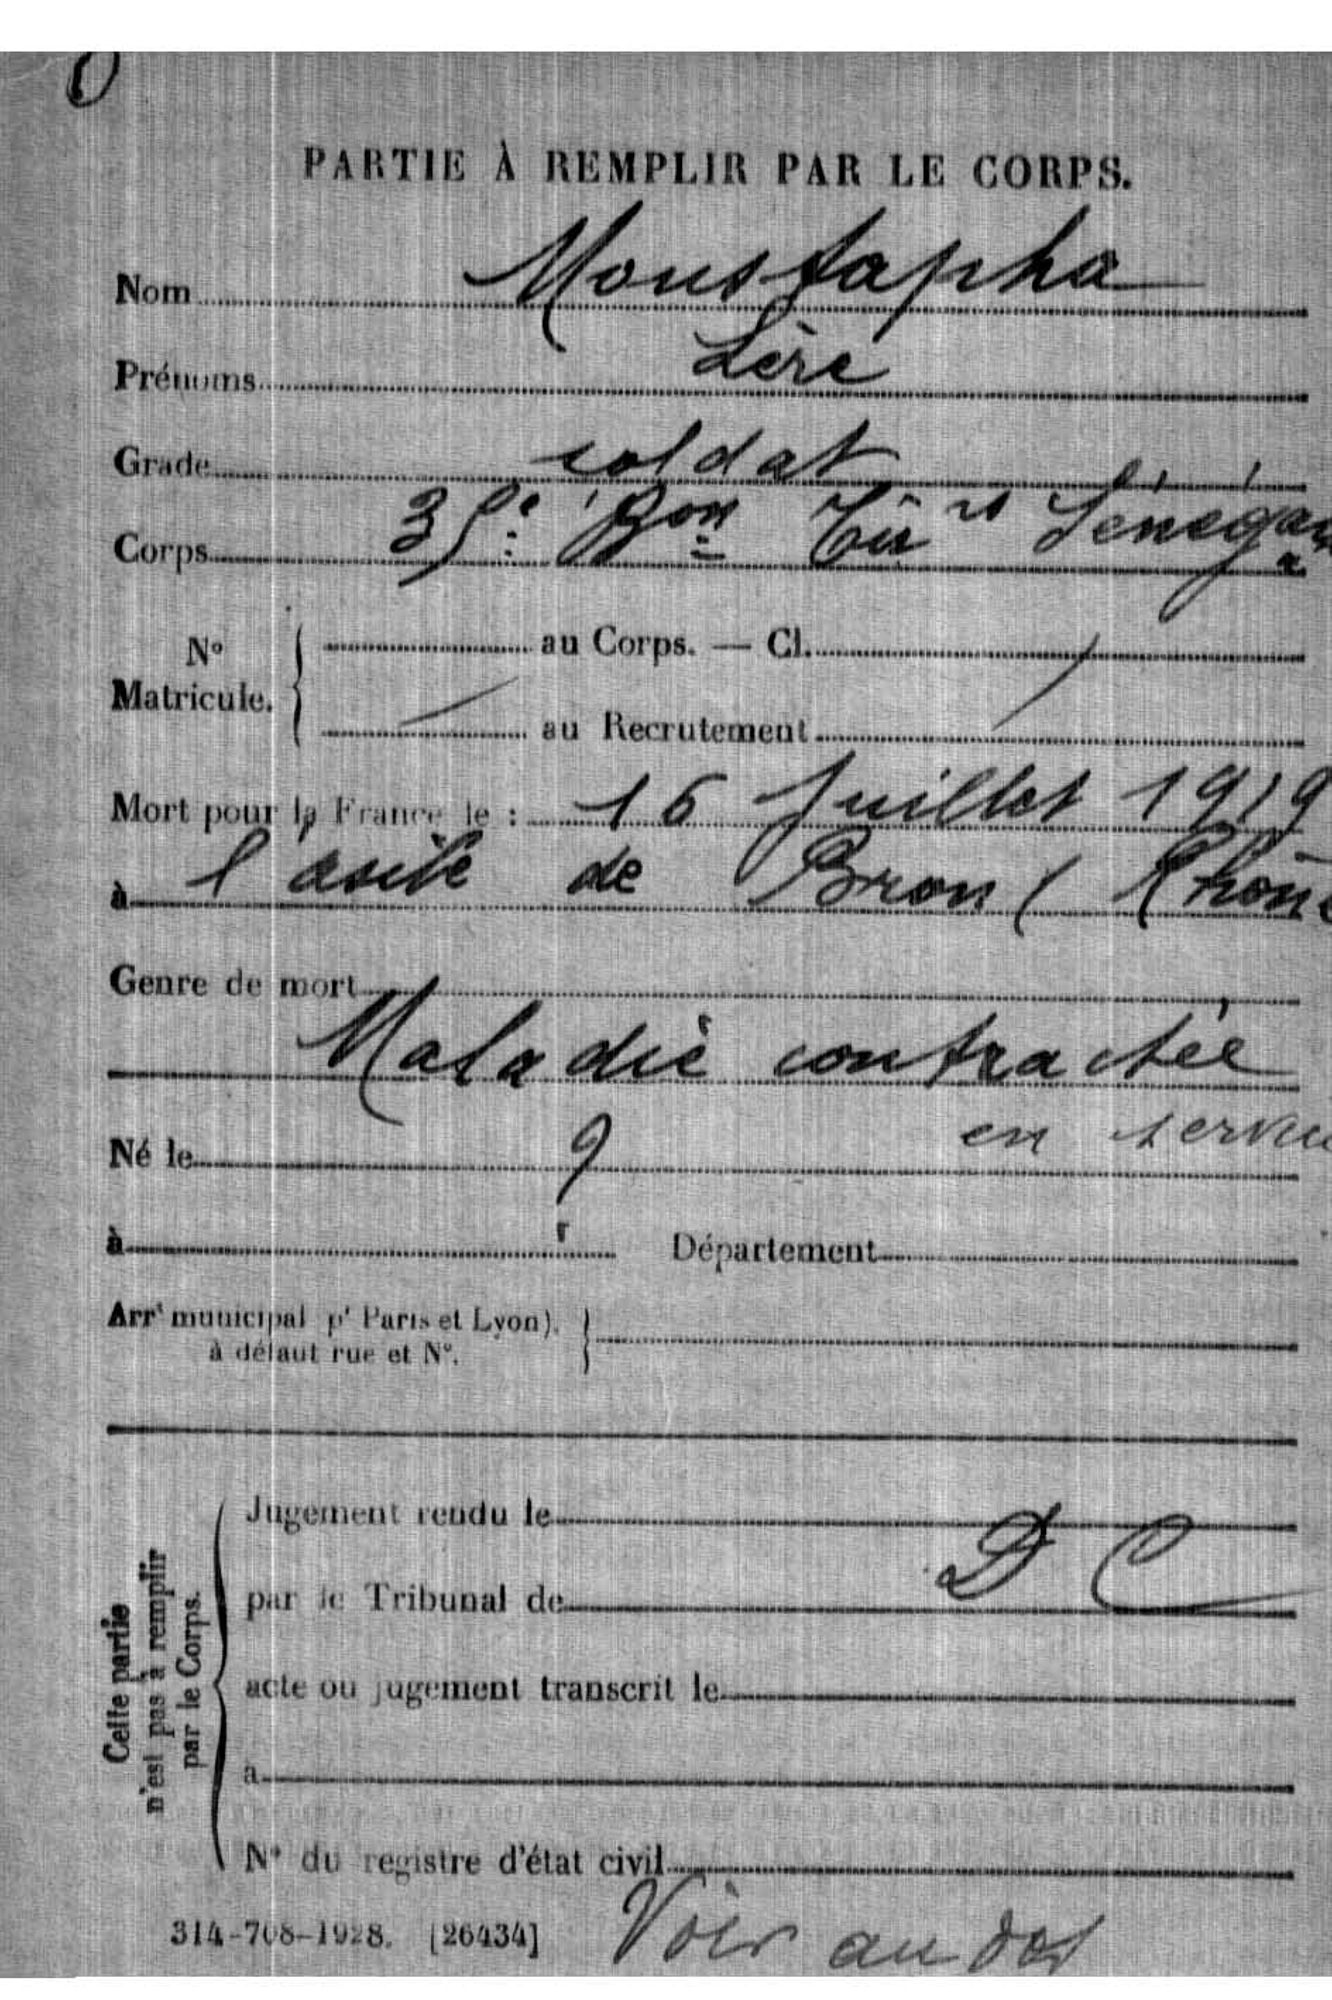 PARTIE À REMPLIR PAR LE CORPS.
Nom Moustapha
Prénoms Lère
Grade soldat
Corps 35e Bon Tirs Sénégal
N° Matricule. au Corps. — Cl.
au Recrutement
Mort pour la France le : 16 Juillet 1919
à l'asile de Bron (Rhône
Genre de mort
Maladie contractée
en service
Né le ?
à Département
Arrt municipal pr Paris et Lyon),
à défaut rue et N°.
Cette partie n'est pas à remplir par le Corps.
Jugement rendu le
D C
par le Tribunal de
acte ou jugement transcrit le
à
N° du registre d'état civil
314-708-1928. [26434]
Voir au dos